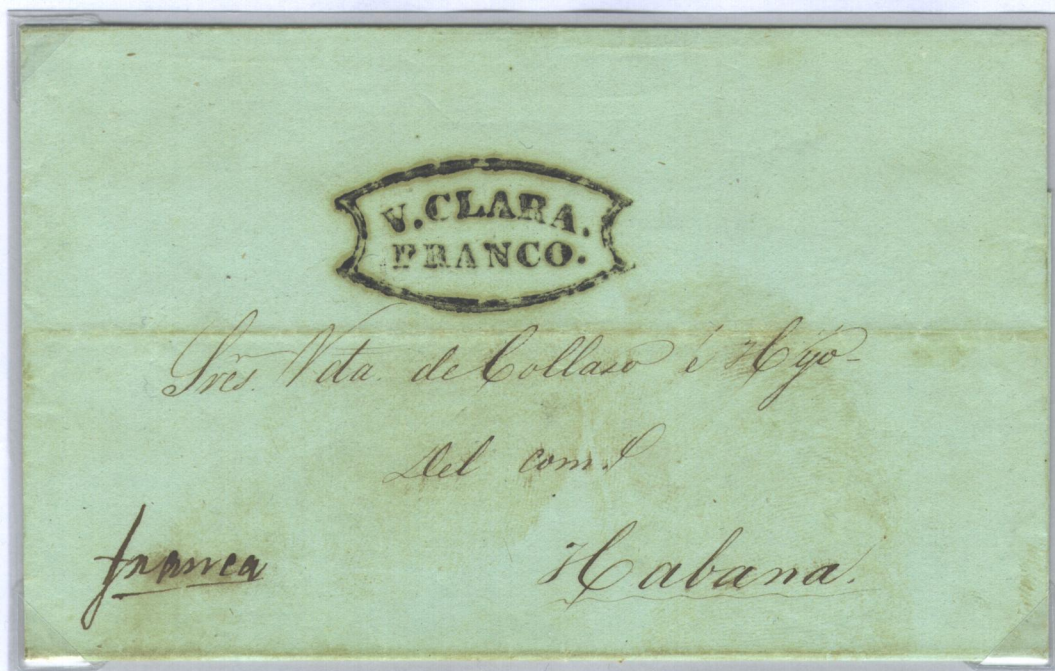 V. CLARA.
FRANCO.
Sres. Vda. de Collaso é Hijo
Del com.o
franca
Habana.